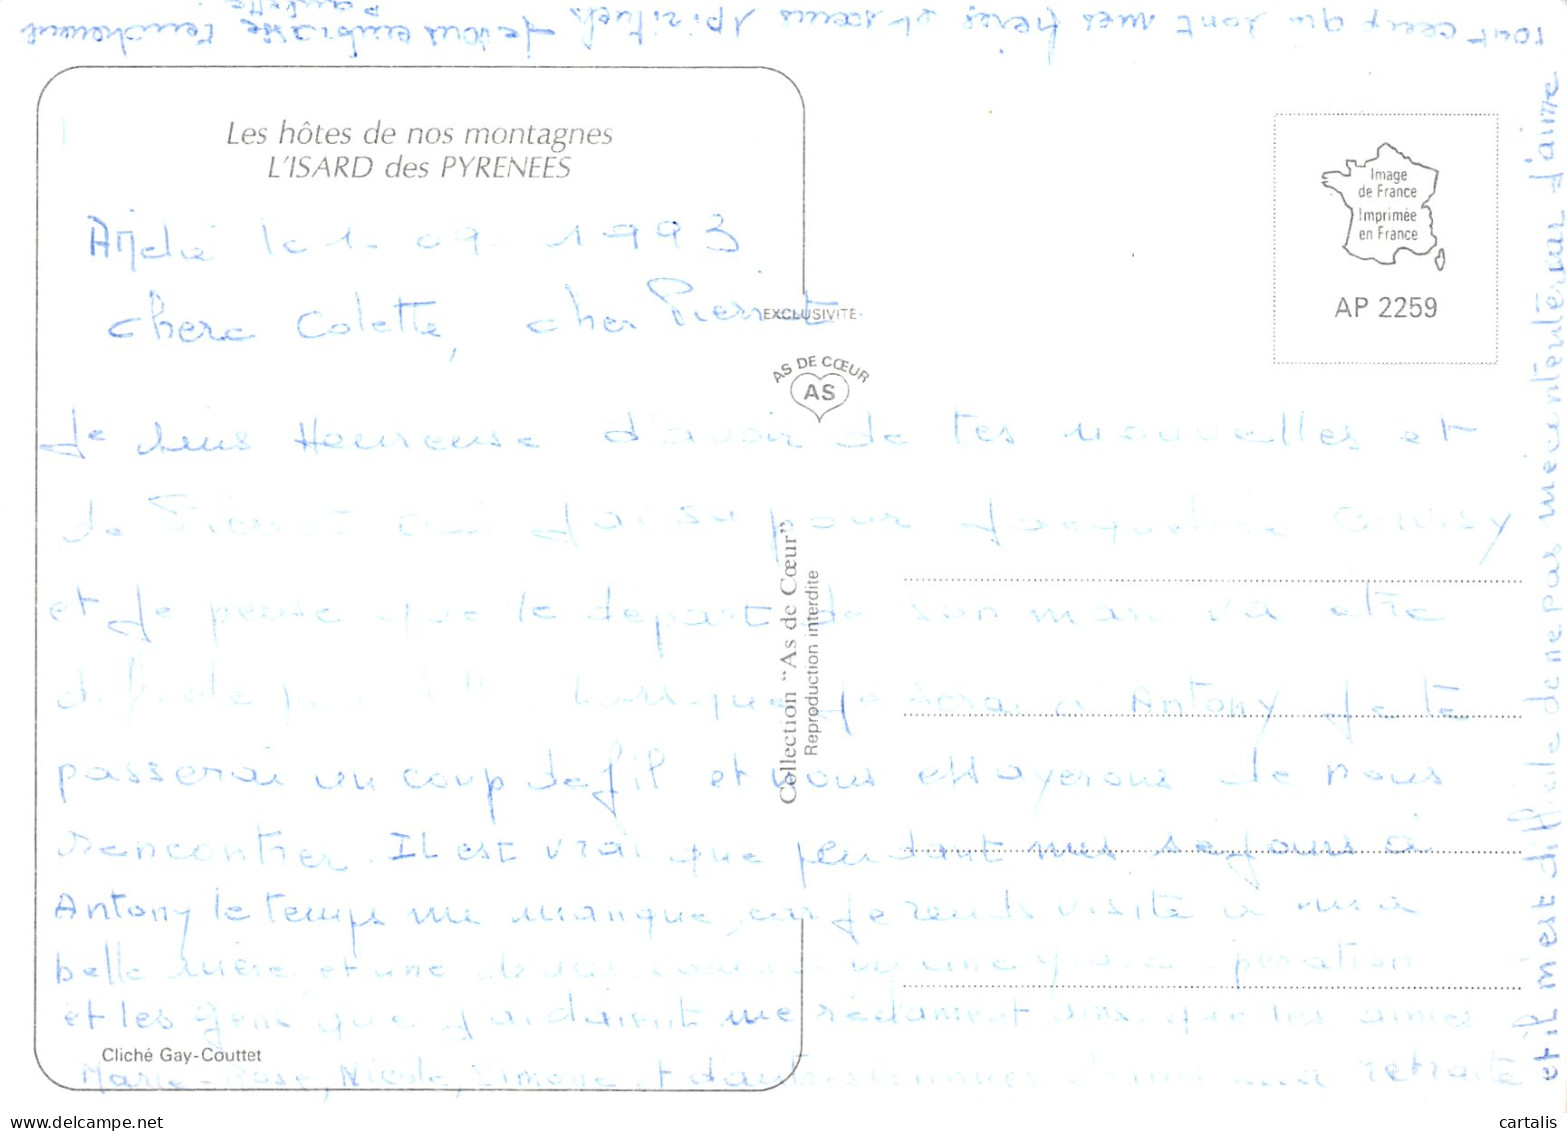 Les hôtes de nos montagnes
L'ISARD des PYRENEES
Image
de France
Imprimée
en France
AP 2259
le 1. 09. 1993
chere Colette, cher Pierrot
EXCLUSIVITE
AS DE CŒUR
AS
Je suis Heureuse d'avoir de tes nouvelles et
de Pierrot pour Jacqueline
et je pense que le départ de son mari va etre
difficile pour elle lorsque je serai a Antony je te
passerai un coup de fil et nous essayerons de nous
rencontrer. Il est vrai que pendant mes séjours à
Antony le temps me manque, car je rends visite a ma
belle mère, et une opération
et les gens que j'aidaient me réclament ainsi que les amies
Marie-Rose, Nicole, Simone et d'autres retraite
et il m'est difficile de ne pas mécontenter sur j'aime
tout ceux qui sont mes frères et sœurs spirituels je vous embrasse tendrement
Paulette
Collection "As de Cœur"
Reproduction interdite
Cliché Gay-Couttet
cartalis